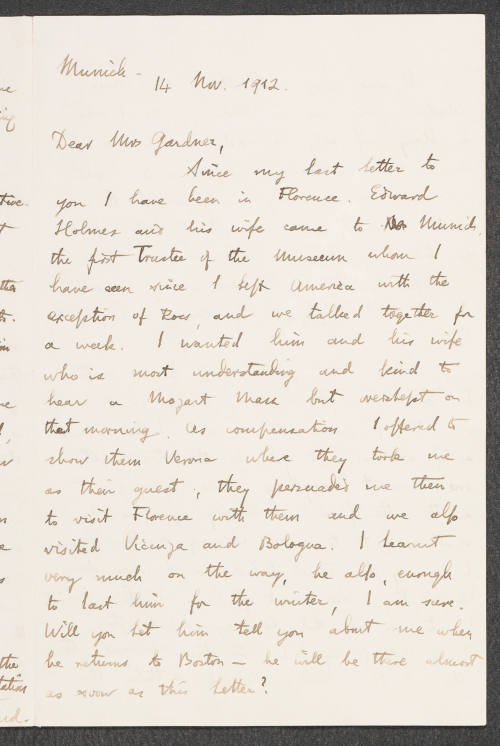 Munich -
14 Nov. 1912.
Dear Mrs Gardner,
Since my last letter to
you I have been in Florence. Edward
Holmes and his wife came to Munich,
the first Trustee of the Museum whom I
have seen since I left America with the
exception of Ross, and we talked together for
a week. I wanted him and his wife
who is most understanding and kind to
hear a Mozart Mass but overslept on
that morning. As compensation I offered to
show them Verona where they took me
as their guest; they persuaded me then
to visit Florence with them and we also
visited Vicenza and Bologna. I learnt
very much on the way, he also, enough
to last him for the winter, I am sure.
Will you let him tell you about me when
he returns to Boston — he will be there almost
as soon as this letter?
the
tation